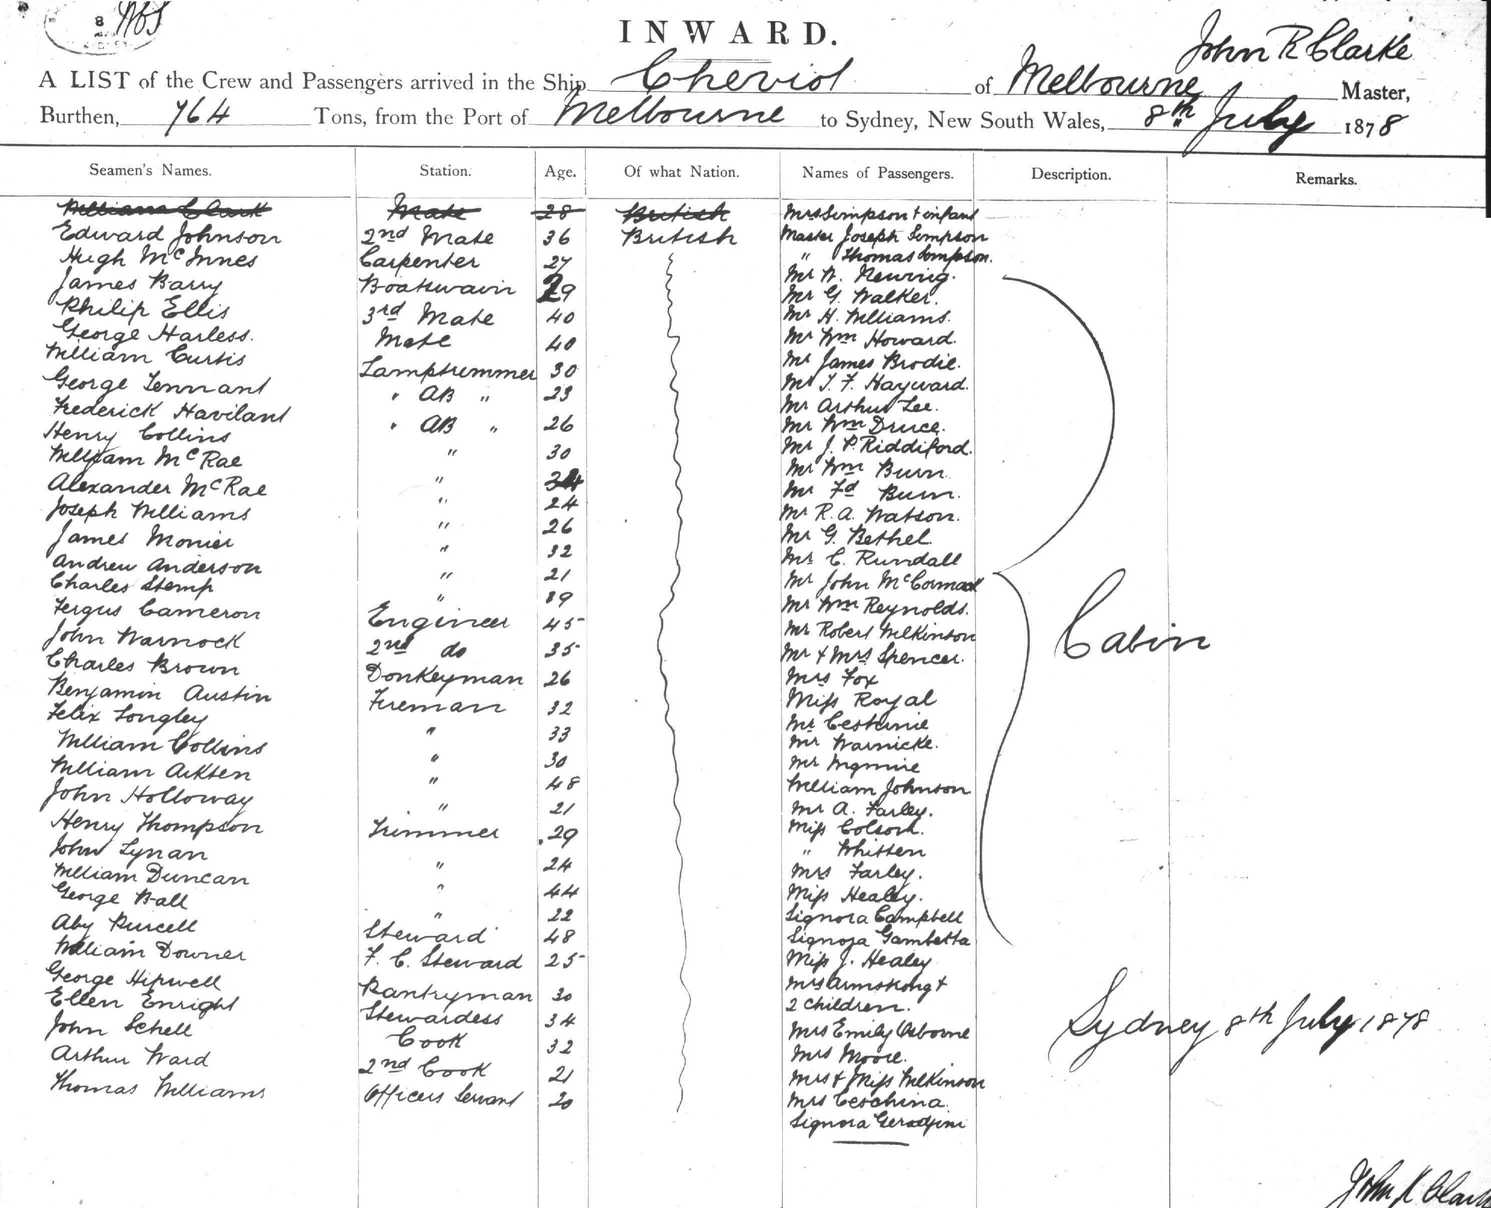 8
INWARD.
John R Clarke
A LIST of the Crew and Passengers arrived in the Ship Cheviot of Melbourne Master,
Burthen, 764 Tons, from the Port of Melbourne to Sydney, New South Wales, 8th July 1878
Seamen's Names. Station. Age. Of what Nation. Names of Passengers. Description. Remarks.
William Clark Mate 28 British Mrs Simpson & infant
Edward Johnson 2nd Mate 36 British Master Joseph Simpson
Hugh McInnes Carpenter 27 " Thomas Simpson.
James Barry Boatswain 29 Mr W.
Philip Ellis 3rd Mate 40 Mr G. Walker.
George Harless. Mate 40 Mr H. Williams.
William Curtis Lamptrimmer 30 Mr Wm Howard.
George Tennant " AB " 23 Mr James Brodie.
Frederick Haviland " AB " 26 Mr T. F. Hayward.
Henry Collins " 30 Mr Arthur Lee.
William McRae " 34 Mr Wm Druce.
Alexander McRae " 24 Mr J. P. Riddiford.
Joseph Williams " 26 Mr Wm Burn
James Monier " 32 Mr Fd Burn.
Andrew Anderson " 21 Mr R. A. Watson.
Charles Stemp " 19 Mr G. Bethel.
Fergus Cameron Engineer 45 Mr C. Rundall
John Warnock 2nd do 35 Mr John McCormack
Charles Brown Donkeyman 26 Mr Wm Reynolds.
Benjamin Austin Fireman 32 Mr Robert Wilkinson
Felix Longley " 33 Mr & Mrs Spencer.
William Collins " 30 Mrs Fox
William Aikten " 48 Miss Royal
John Holloway " 21 Mr
Henry Thompson Trimmer 29 Mr Warnicke.
John Lynan " 24 Mr
William Duncan " 44 William Johnson
George Ball " 22 Mr A. Farley.
Aby Purcell Steward 48 Miss Colson.
William Downer F. C. Steward 25 " Whitten
George Hipwell Pantryman 30 Mrs Farley.
Ellen Enright Stewardess 34 Miss Healey.
John Schell Cook 32 Signora Campbell
Arthur Ward 2nd Cook 21 Signora Gambetta
Thomas Williams Officers Servant 20 Miss J. Healey
Mrs Armstrong &
2 children.
Mrs Emily Osborne
Mrs Moore.
Mrs & Miss Wilkinson
Mrs Ceschina.
Signora
Cabin
Sydney 8th July 1878
John R Clark